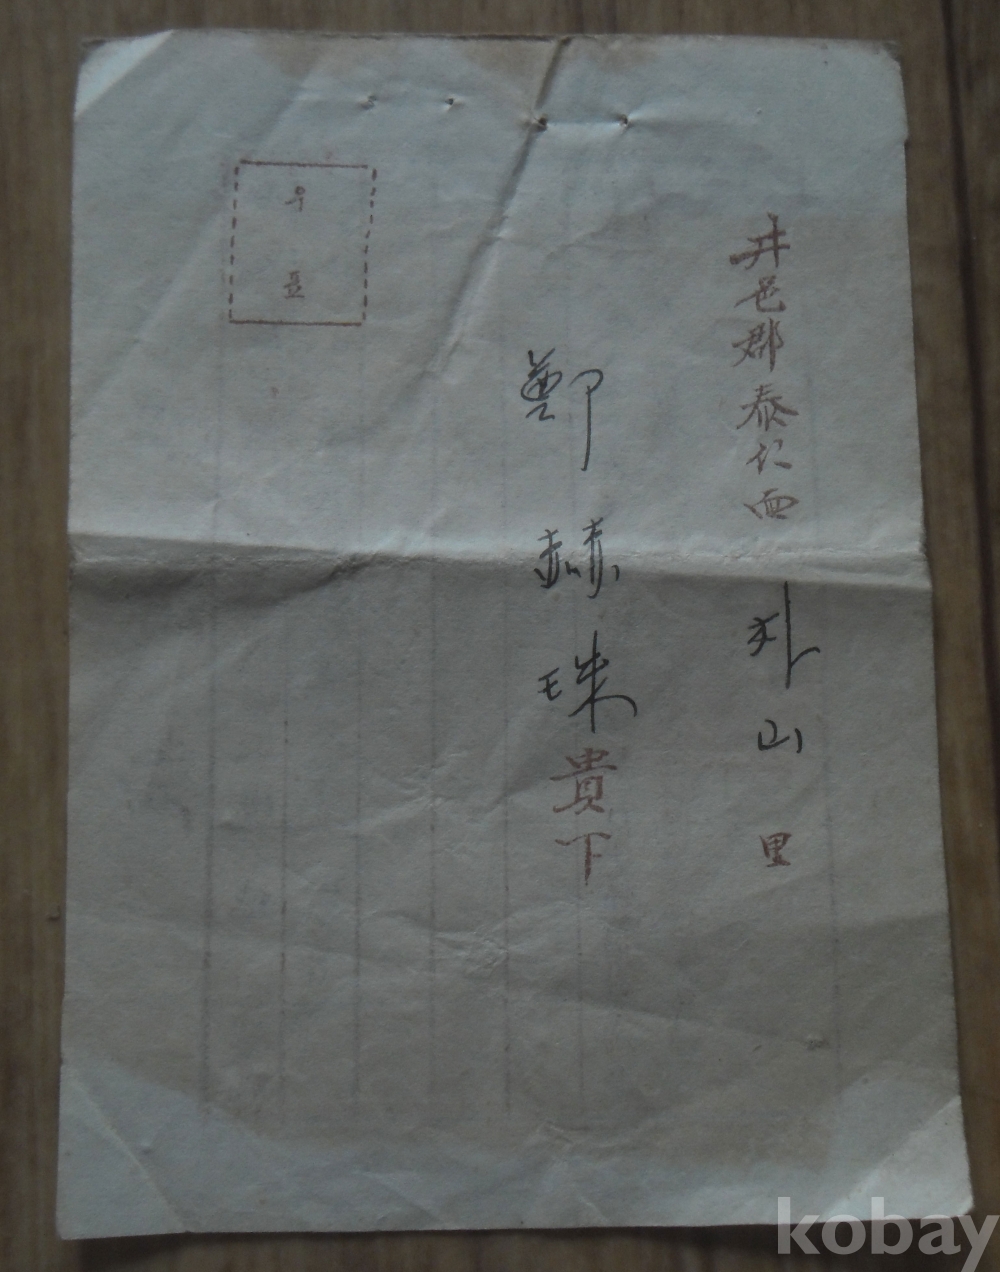 井邑郡泰仁面 外山 里
鄭赫珠貴下
우
표
kobay